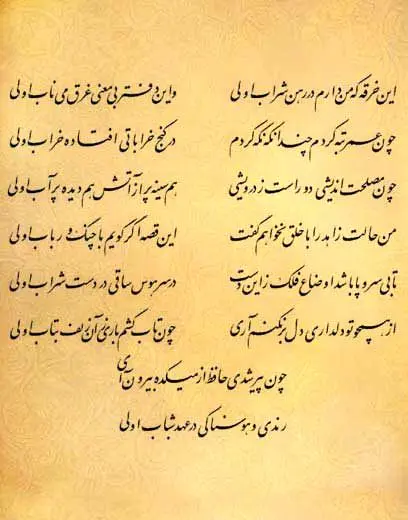 این خرقه که من دارم در رهن شراب اولی واین دفتر بی معنی غرق می ناب اولی
چون عمر تبه کردم چندانکه نگه کردم در کنج خراباتی افتاده خراب اولی
چون مصلحت اندیشی دور است ز درویشی هم سینه پر از آتش هم دیده پر آب اولی
من حالت زاهد را با خلق نخواهم گفت این قصه اگر گویم با چنگ و رباب اولی
تا بی سر و پا باشد اوضاع فلک زاین دست در سر هوس ساقی در دست شراب اولی
از همچو تو دلداری دل برنکنم آری چون تاب کشم باری زان زلف بتاب اولی
چون پیر شدی حافظ از میکده بیرون آی
رندی و هوسناکی در عهد شباب اولی